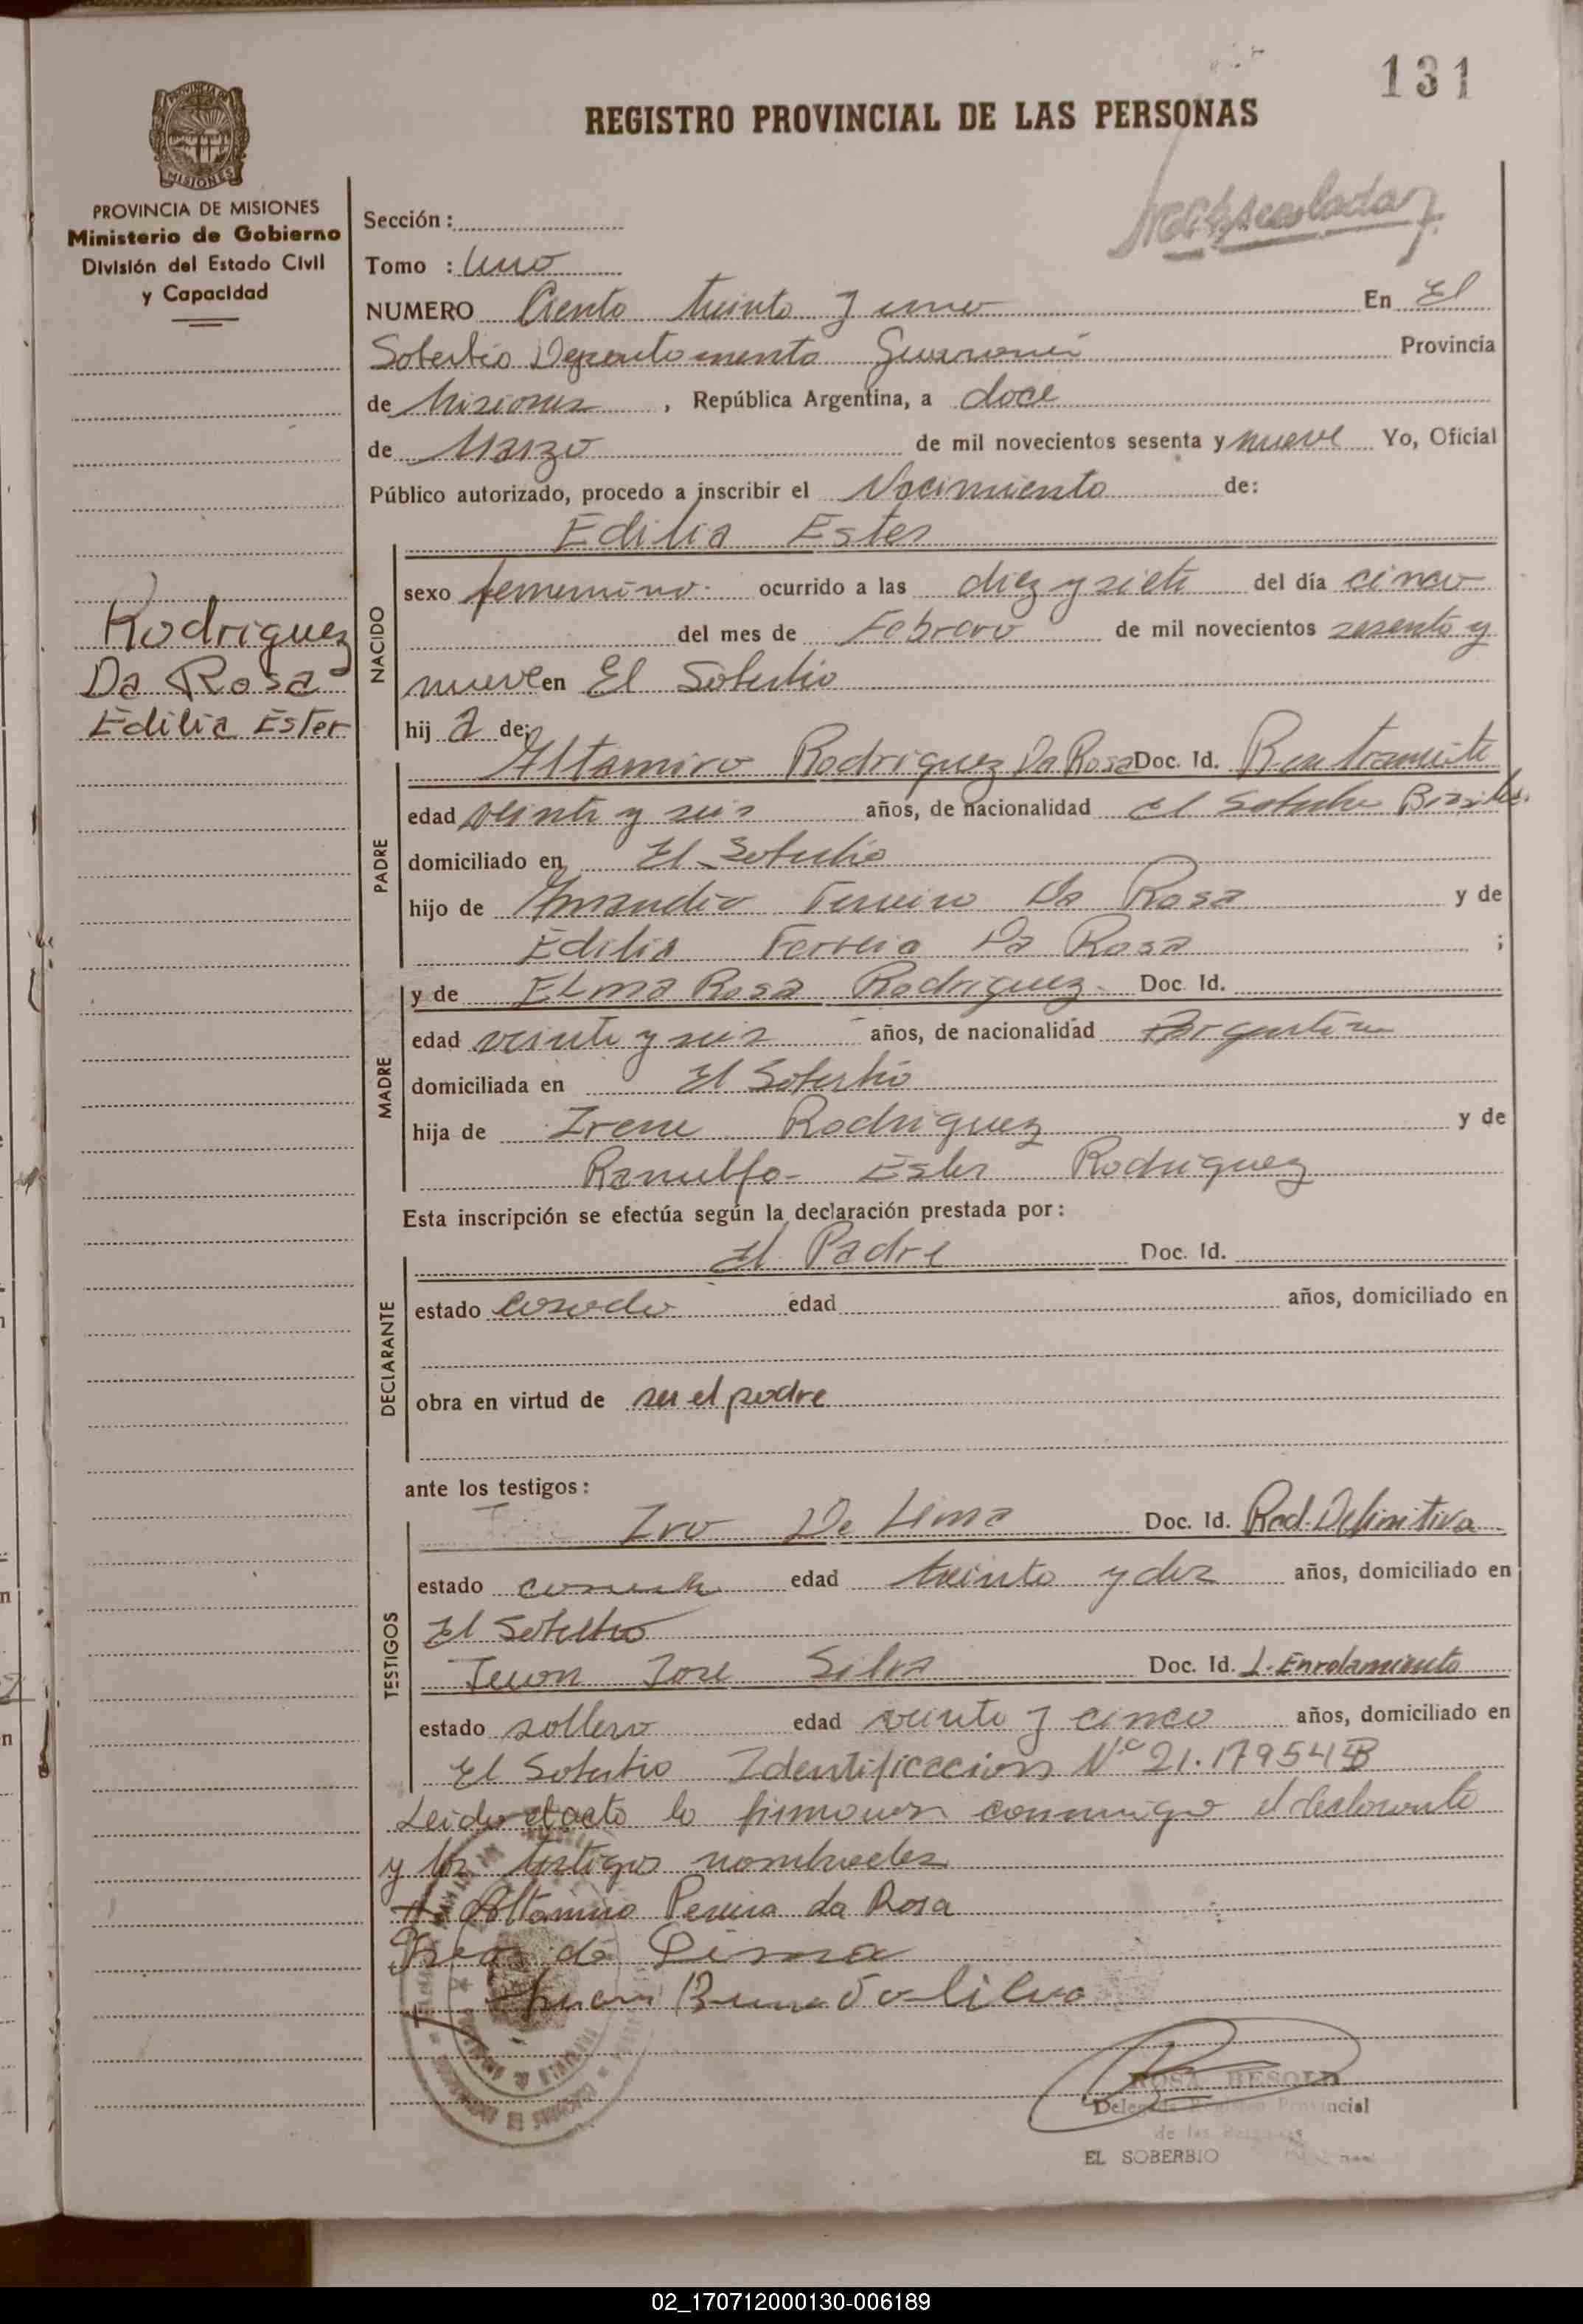 131
REGISTRO PROVINCIAL DE LAS PERSONAS
PROVINCIA DE MISIONES
Ministerio de Gobierno
División del Estado Civil
y Capacidad
Sección :
Tomo : Uno
NUMERO Ciento treinta y uno En El
Soberbio Departamento Guaraní Provincia
de Misiones , República Argentina, a doce
de Marzo de mil novecientos sesenta y nueve Yo, Oficial
Público autorizado, procedo a inscribir el Nacimiento de:
Rodriguez
Da Rosa
Edilia Ester
NACIDO
Edilia Ester
sexo femenino. ocurrido a las diez y siete del día cinco
del mes de Febrero de mil novecientos sesenta y
nueve en El Soberbio
hij a de:
PADRE
Altamiro Rodriguez Da Rosa Doc. Id. R. en tramite
edad veinte y seis años, de nacionalidad El Soberbio
domiciliado en El Soberbio
hijo de Da Rosa y de
Edilia Da Rosa ;
MADRE
y de Elma Rosa Rodriguez Doc. Id.
edad veinte y seis años, de nacionalidad Argentina
domiciliada en El Soberbio
hija de Irene Rodriguez y de
Ranulfa Ester Rodriguez
Esta inscripción se efectúa según la declaración prestada por :
DECLARANTE
El Padre Doc. Id.
estado casado edad años, domiciliado en
obra en virtud de ser el padre
ante los testigos :
TESTIGOS
Ivo De Lima Doc. Id. Rad. Definitiva
estado edad treinta y dos años, domiciliado en
El Soberbio
Juan Jose Silva Doc. Id. L. Enrolamiento
estado soltero edad veinte y cinco años, domiciliado en
El Soberbio Identificacion Nº 21.179544B
Leido el acto lo firmaron conmigo el declarante
y los testigos nombrados
Altamiro Pereira da Rosa
de Lima
Juan Silva
ROSA BESOLD
Provincial
de las
EL SOBERBIO
02_170712000130-006189